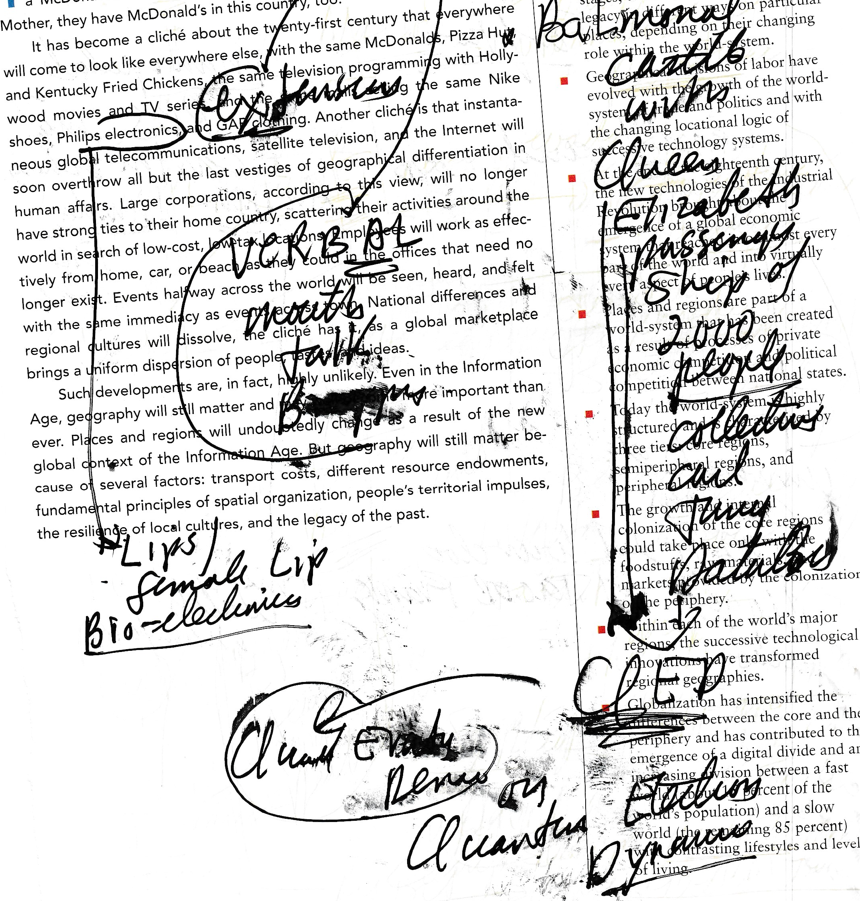 Mother, they have McDonald's in this country, too.
It has become a cliché about the twenty-first century that everywhere
will come to look like everywhere else, with the same McDonald's, Pizza Hut,
and Kentucky Fried Chickens, the same television programming with Holly-
wood movies and TV series, and the same Nike
shoes, Philips electronics, and GAP clothing. Another cliché is that instanta-
neous global telecommunications, satellite television, and the Internet will
soon overthrow all but the last vestiges of geographical differentiation in
human affairs. Large corporations, according to this view, will no longer
have strong ties to their home country, scattering their activities around the
world in search of low-cost, low-tax locations. Employees will work as effec-
tively from home, car, or beach as they could in the offices that need no
longer exist. Events halfway across the world will be seen, heard, and felt
with the same immediacy as events across town. National differences and
regional cultures will dissolve, the cliché has it, as a global marketplace
brings a uniform dispersion of people, tastes, and ideas.
Such developments are, in fact, highly unlikely. Even in the Information
Age, geography will still matter and more important than
ever. Places and regions will undoubtedly change as a result of the new
global context of the Information Age. But geography will still matter be-
cause of several factors: transport costs, different resource endowments,
fundamental principles of spatial organization, people's territorial impulses,
the resilience of local cultures, and the legacy of the past.
VERBAL
mouth
talk
Lips/
female Lip
Bio-electronics
on
Quantum
legacy in different ways on particular
places, depending on their changing
role within the world-system.
Geographical divisions of labor have
evolved with the growth of the world-
system of trade and politics and with
the changing locational logic of
successive technology systems.
At the eighteenth century,
the new technologies of the Industrial
Revolution brought about the
emergence of a global economic
system that reached almost every
part of the world and into virtually
every aspect of people's lives.
Places and regions are part of a
world-system that has been created
as a result of processes of private
economic competition and political
competition between national states.
Today the world-system is highly
structured and is characterized by
three tiers: core regions,
semiperipheral regions, and
peripheral regions.
The growth and internal
colonization of the core regions
could take place only with the
foodstuffs, raw materials,
markets provided by the colonization
of the periphery.
Within each of the world's major
regions, the successive technological
innovations have transformed
regional geographies.
Globalization has intensified the
differences between the core and the
periphery and has contributed to the
emergence of a digital divide and an
increasing division between a fast
world (about 15 percent of the
world's population) and a slow
world (the remaining 85 percent)
with contrasting lifestyles and levels
of living.
with
Queen
Elizabeth
passenger
Ship of
2600
people
collective
Carl
Jung
QED
Electron
Dynamics